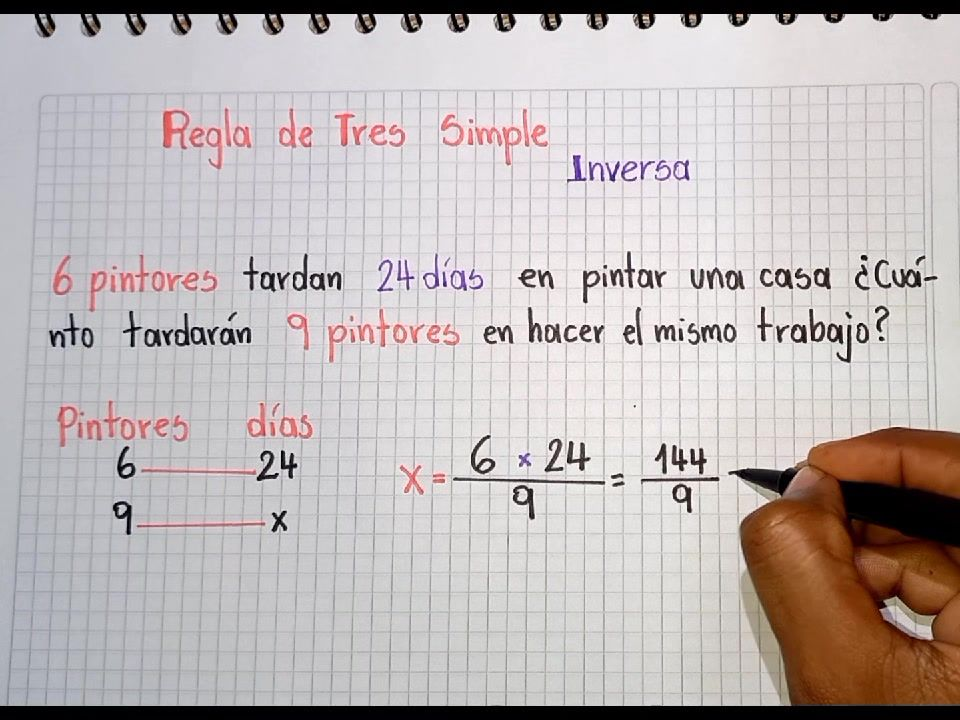 Regla de Tres Simple
Inversa
6 pintores tardan 24 días en pintar una casa ¿Cuá-
nto tardarán 9 pintores en hacer el mismo trabajo?
Pintores días
6 24
9 x
x = 6 × 24 / 9 = 144 / 9